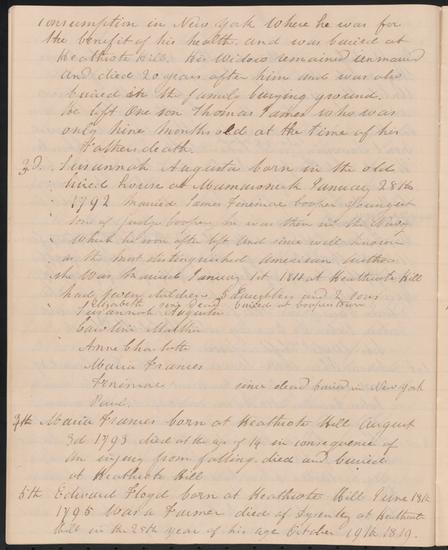 Consumption in New York where he was for
the benefit of his health and was buried at
Heathcote Hill. His Widow remained unmarried
and died 20 years after him and was also
buried in the family burying ground.
He left One son Thomas James who was
only nine months old at the time of his
Fathers death.
3d. Susannah Augusta born in the old
hired house at Mamaroneck January 28th
1792 married James Fenimore Cooper youngest
son of Judge Cooper, he was then in the Navy
which he soon after left and since well known
as the most distinguished American author
she was married January 1st 1811 at Heathcote Hill
had seven children 5 daughters and 2 sons
Elizabeth since dead buried at Cooperstown
Susannah Augusta
Caroline Martha
Anne Charlotte
Maria Frances
Fenimore since dead buried in New York
Paul.
4th Maria Frances born at Heathcote Hill August
3d 1793 died at the age of 14 in consequence of
an injury from falling. died and buried
at Heathcote Hill
5th Edward Floyd born at Heathcote Hill June 18th
1795 was a Farmer died of Dysentery at Heathcote
Hill in the 25th year of his age October 19th 1819.